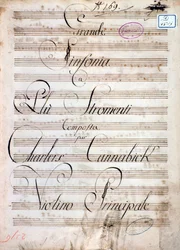 Grande
Sinfonia
a
Più Stromenti
Composta
per
Charlexs Cannabick
Violino Principale